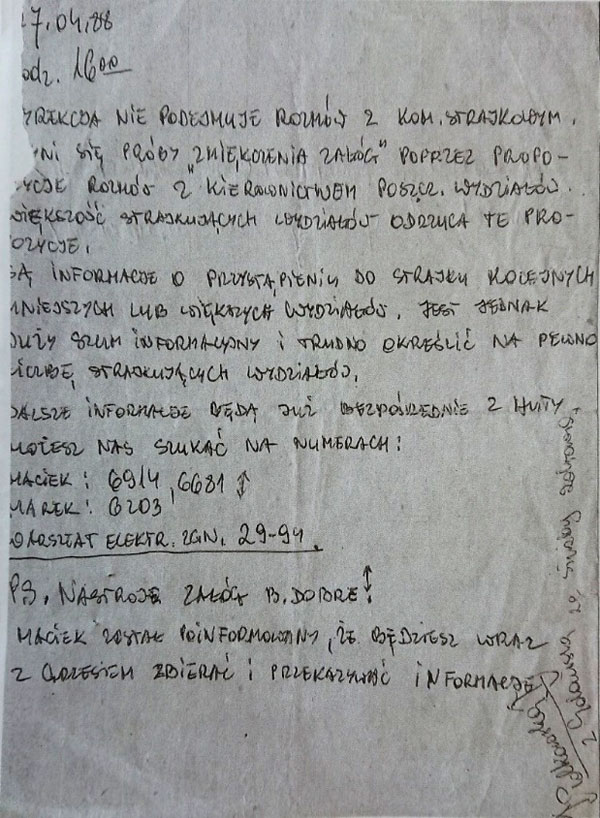 7.04.88
odz. 16⁰⁰
YREKCJA NIE PODEJMUJE ROZMÓW Z KOM. STRAJKOWYM.
YNI SIĘ PRÓBY "ZMIĘKCZENIA ZAŁÓG" POPRZEZ PROPO-
YCJE ROZMÓW Z KIEROWNICTWEM POSZCZ. WYDZIAŁÓW.
WIĘKSZOŚĆ STRAJKUJĄCYCH WYDZIAŁÓW ODRZUCA TE PRO-
OZYCJE.
SĄ INFORMACJE O PRZYSTĄPIENIU DO STRAJKU KOLEJNYCH
MNIEJSZYCH LUB WIĘKSZYCH WYDZIAŁÓW. JEST JEDNAK
DUŻY SZUM INFORMACYJNY I TRUDNO OKREŚLIĆ NA PEWNO
LICZBĘ STRAJKUJĄCYCH WYDZIAŁÓW.
DALSZE INFORMACJE BĘDĄ JUŻ BEZPOŚREDNIE Z HUTY.
MOŻESZ NAS SZUKAĆ NA NUMERACH:
MACIEK: 6914, 6681
MAREK: 6203
WARSZTAT ELEKTR. ZGN. 29-94.
PS. NASTROJE ZAŁÓG B. DOBRE!
MACIEK ZOSTAŁ POINFORMOWANY, ŻE BĘDZIESZ WRAZ
Z GRZESIEM ZBIERAĆ I PRZEKAZYWAĆ INFORMACJE